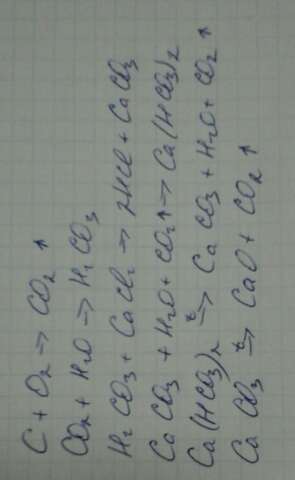 C + O₂ => CO₂ ↑
CO₂ + H₂O => H₂CO₃
H₂CO₃ + CaCl₂ => 2HCl + CaCO₃
CaCO₃ + H₂O + CO₂↑ => Ca(HCO₃)₂
Ca(HCO₃)₂ =t> CaCO₃ + H₂O + CO₂↑
CaCO₃ =t> CaO + CO₂ ↑